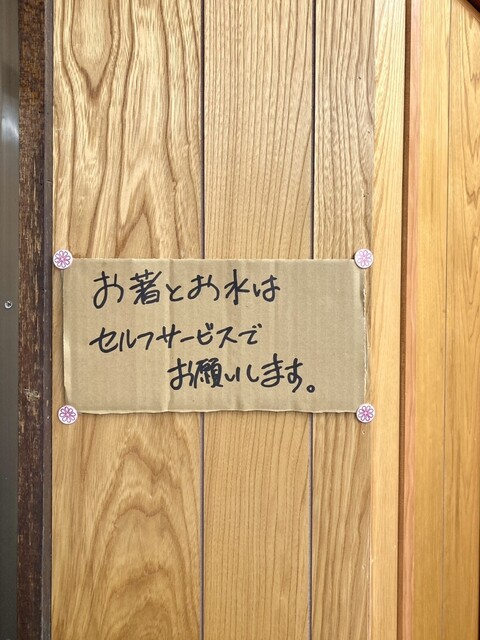 お箸とお水は
セルフサービスで
お願いします。